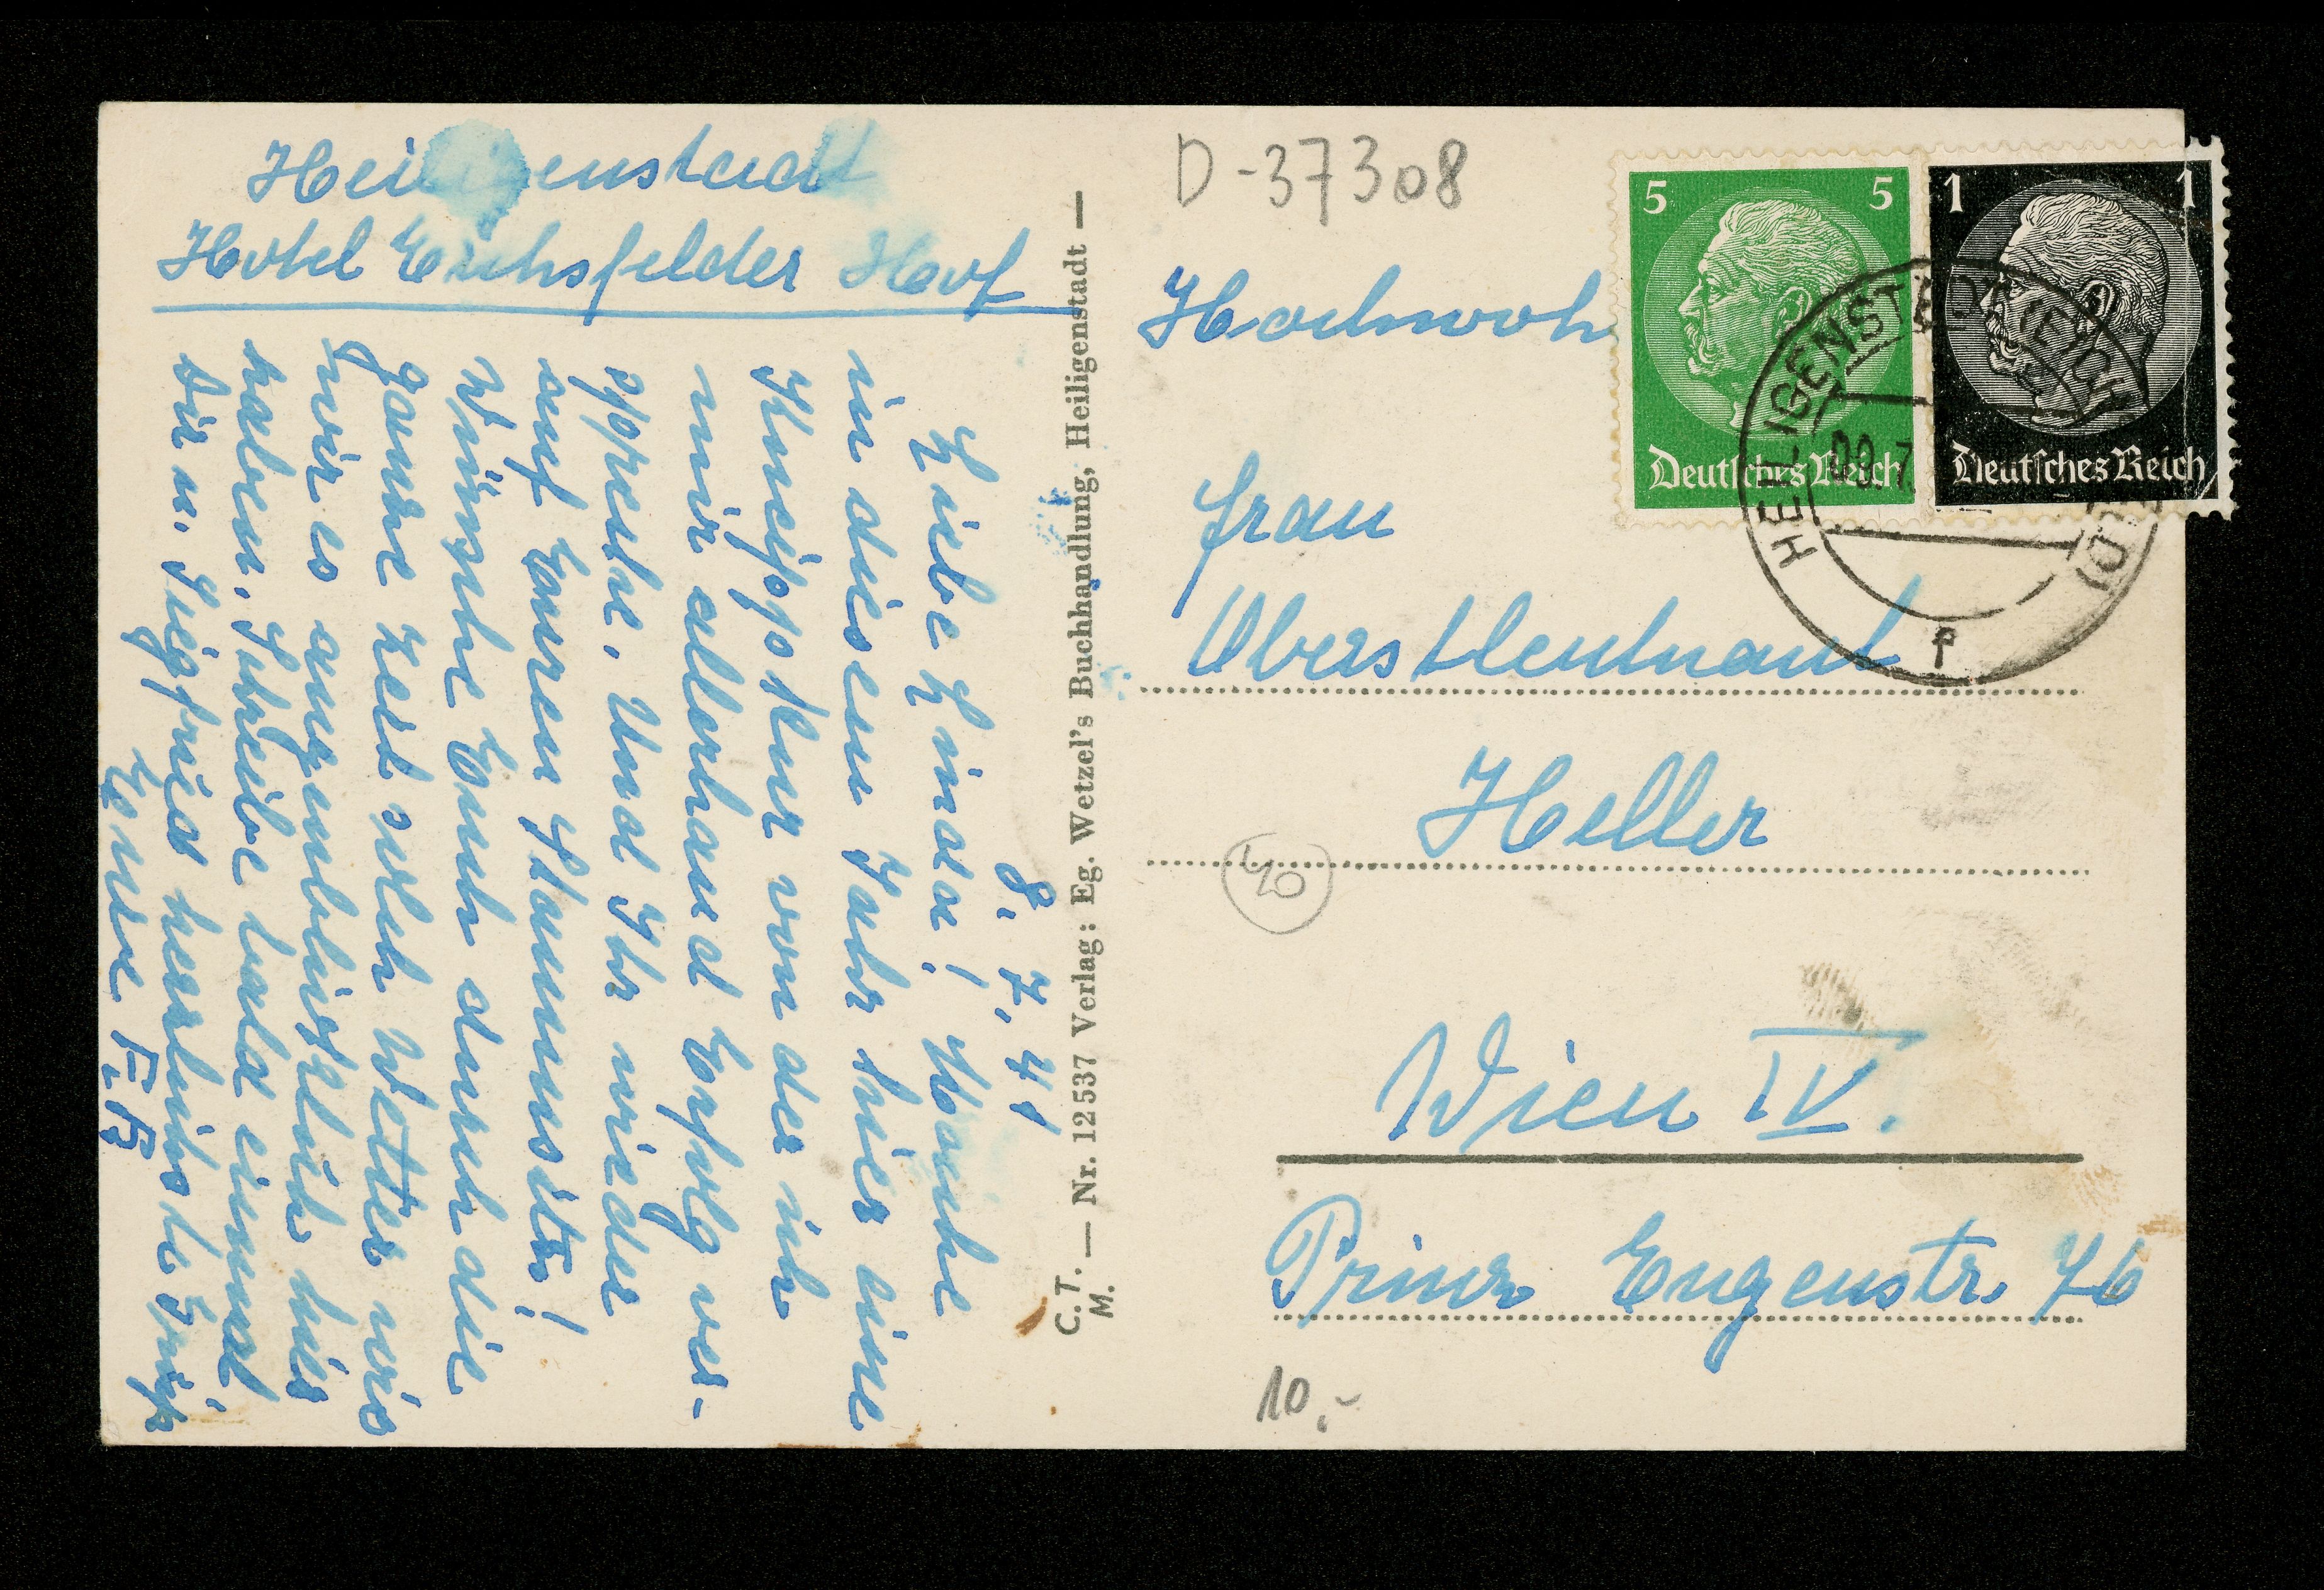 Heiligenstadt
Hotel Eichsfelder Hof
8. 7. 41
Liebe Linda! Mache
in diesem Jahr hier eine
Kneippkur von der ich
mir allerhand Erfolg ver-
spreche. Und Ihr wieder
auf Eurem Stammsitz!
Wünsche Euch durch die
ganze Zeit solch Wetter wie
wir es augenblicklich hier
haben. Schreibe bald einmal
Dir u. Siegfried herzlichste Grüße
Eure
C. T. M. — Nr. 12537 Verlag: Eg. Wetzel's Buchhandlung, Heiligenstadt —
D-37308
Hochwoh
5 5
Deutsches Reich
1 1
Deutsches Reich
HEILIGENSTADT (EICHSFELD)
f
Frau
Oberstleutnant
Heller
40
Wien IV.
Prinz Eugenstr. 76
10,-